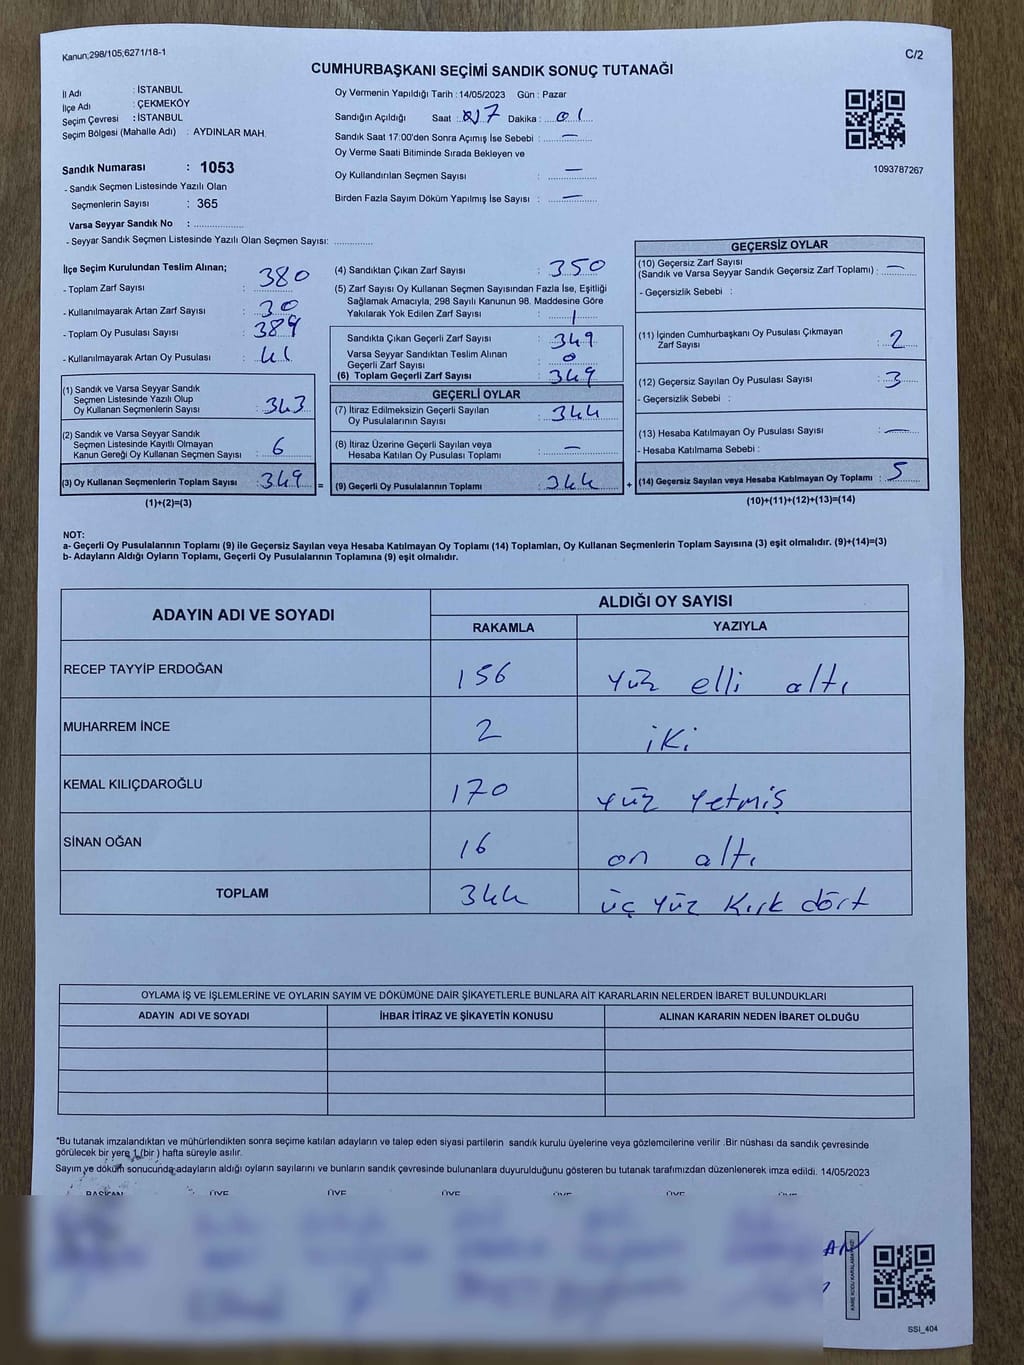 Kanun;298/105;6271/18-1
C/2
CUMHURBAŞKANI SEÇİMİ SANDIK SONUÇ TUTANAĞI
İl Adı : İSTANBUL
İlçe Adı : ÇEKMEKÖY
Seçim Çevresi : İSTANBUL
Seçim Bölgesi (Mahalle Adı) : AYDINLAR MAH.
Sandık Numarası : 1053
- Sandık Seçmen Listesinde Yazılı Olan
Seçmenlerin Sayısı : 365
Varsa Seyyar Sandık No : ..............
- Seyyar Sandık Seçmen Listesinde Yazılı Olan Seçmen Sayısı: ............
Oy Vermenin Yapıldığı Tarih : 14/05/2023 Gün : Pazar
Sandığın Açıldığı Saat : 17 Dakika : 01
Sandık Saat 17:00'den Sonra Açımış İse Sebebi : —
Oy Verme Saati Bitiminde Sırada Bekleyen ve
Oy Kullandırılan Seçmen Sayısı : —
Birden Fazla Sayım Döküm Yapılmış İse Sayısı : —
1093787267
İlçe Seçim Kurulundan Teslim Alınan;
- Toplam Zarf Sayısı : 380
- Kullanılmayarak Artan Zarf Sayısı : 30
- Toplam Oy Pusulası Sayısı : 389
- Kullanılmayarak Artan Oy Pusulası : 41
(1) Sandık ve Varsa Seyyar Sandık
Seçmen Listesinde Yazılı Olup
Oy Kullanan Seçmenlerin Sayısı : 343
(2) Sandık ve Varsa Seyyar Sandık
Seçmen Listesinde Kayıtlı Olmayan
Kanun Gereği Oy Kullanan Seçmen Sayısı : 6
(3) Oy Kullanan Seçmenlerin Toplam Sayısı : 349 =
(1)+(2)=(3)
(4) Sandıktan Çıkan Zarf Sayısı : 350
(5) Zarf Sayısı Oy Kullanan Seçmen Sayısından Fazla İse, Eşitliği
Sağlamak Amacıyla, 298 Sayılı Kanunun 98. Maddesine Göre
Yakılarak Yok Edilen Zarf Sayısı : 1
Sandıkta Çıkan Geçerli Zarf Sayısı : 349
Varsa Seyyar Sandıktan Teslim Alınan
Geçerli Zarf Sayısı : 0
(6) Toplam Geçerli Zarf Sayısı : 349
GEÇERLİ OYLAR
(7) İtiraz Edilmeksizin Geçerli Sayılan
Oy Pusulalarının Sayısı : 344
(8) İtiraz Üzerine Geçerli Sayılan veya
Hesaba Katılan Oy Pusulası Toplamı : —
(9) Geçerli Oy Pusulalarının Toplamı : 344 +
GEÇERSİZ OYLAR
(10) Geçersiz Zarf Sayısı
(Sandık ve Varsa Seyyar Sandık Geçersiz Zarf Toplamı) : —
- Geçersizlik Sebebi :
(11) İçinden Cumhurbaşkanı Oy Pusulası Çıkmayan
Zarf Sayısı : 2
(12) Geçersiz Sayılan Oy Pusulası Sayısı : 3
- Geçersizlik Sebebi :
(13) Hesaba Katılmayan Oy Pusulası Sayısı : —
- Hesaba Katılmama Sebebi :
(14) Geçersiz Sayılan veya Hesaba Katılmayan Oy Toplamı : 5
(10)+(11)+(12)+(13)=(14)
NOT:
a- Geçerli Oy Pusulalarının Toplamı (9) ile Geçersiz Sayılan veya Hesaba Katılmayan Oy Toplamı (14) Toplamları, Oy Kullanan Seçmenlerin Toplam Sayısına (3) eşit olmalıdır. (9)+(14)=(3)
b- Adayların Aldığı Oyların Toplamı, Geçerli Oy Pusulalarının Toplamına (9) eşit olmalıdır.
ADAYIN ADI VE SOYADI ALDIĞI OY SAYISI
RAKAMLA YAZIYLA
RECEP TAYYİP ERDOĞAN 156 yüz elli altı
MUHARREM İNCE 2 iki
KEMAL KILIÇDAROĞLU 170 yüz yetmiş
SİNAN OĞAN 16 on altı
TOPLAM 344 üç yüz kırk dört
OYLAMA İŞ VE İŞLEMLERİNE VE OYLARIN SAYIM VE DÖKÜMÜNE DAİR ŞİKAYETLERLE BUNLARA AİT KARARLARIN NELERDEN İBARET BULUNDUKLARI
ADAYIN ADI VE SOYADI İHBAR İTİRAZ VE ŞİKAYETİN KONUSU ALINAN KARARIN NEDEN İBARET OLDUĞU
*Bu tutanak imzalandıktan ve mühürlendikten sonra seçime katılan adayların ve talep eden siyasi partilerin sandık kurulu üyelerine veya gözlemcilerine verilir .Bir nüshası da sandık çevresinde
görülecek bir yere 1 (bir ) hafta süreyle asılır.
Sayım ve döküm sonucunda adayların aldığı oyların sayılarını ve bunların sandık çevresinde bulunanlara duyurulduğunu gösteren bu tutanak tarafımızdan düzenlenerek imza edildi. 14/05/2023
BAŞKAN ÜYE ÜYE ÜYE ÜYE ÜYE ÜYE
AN
SSI_404